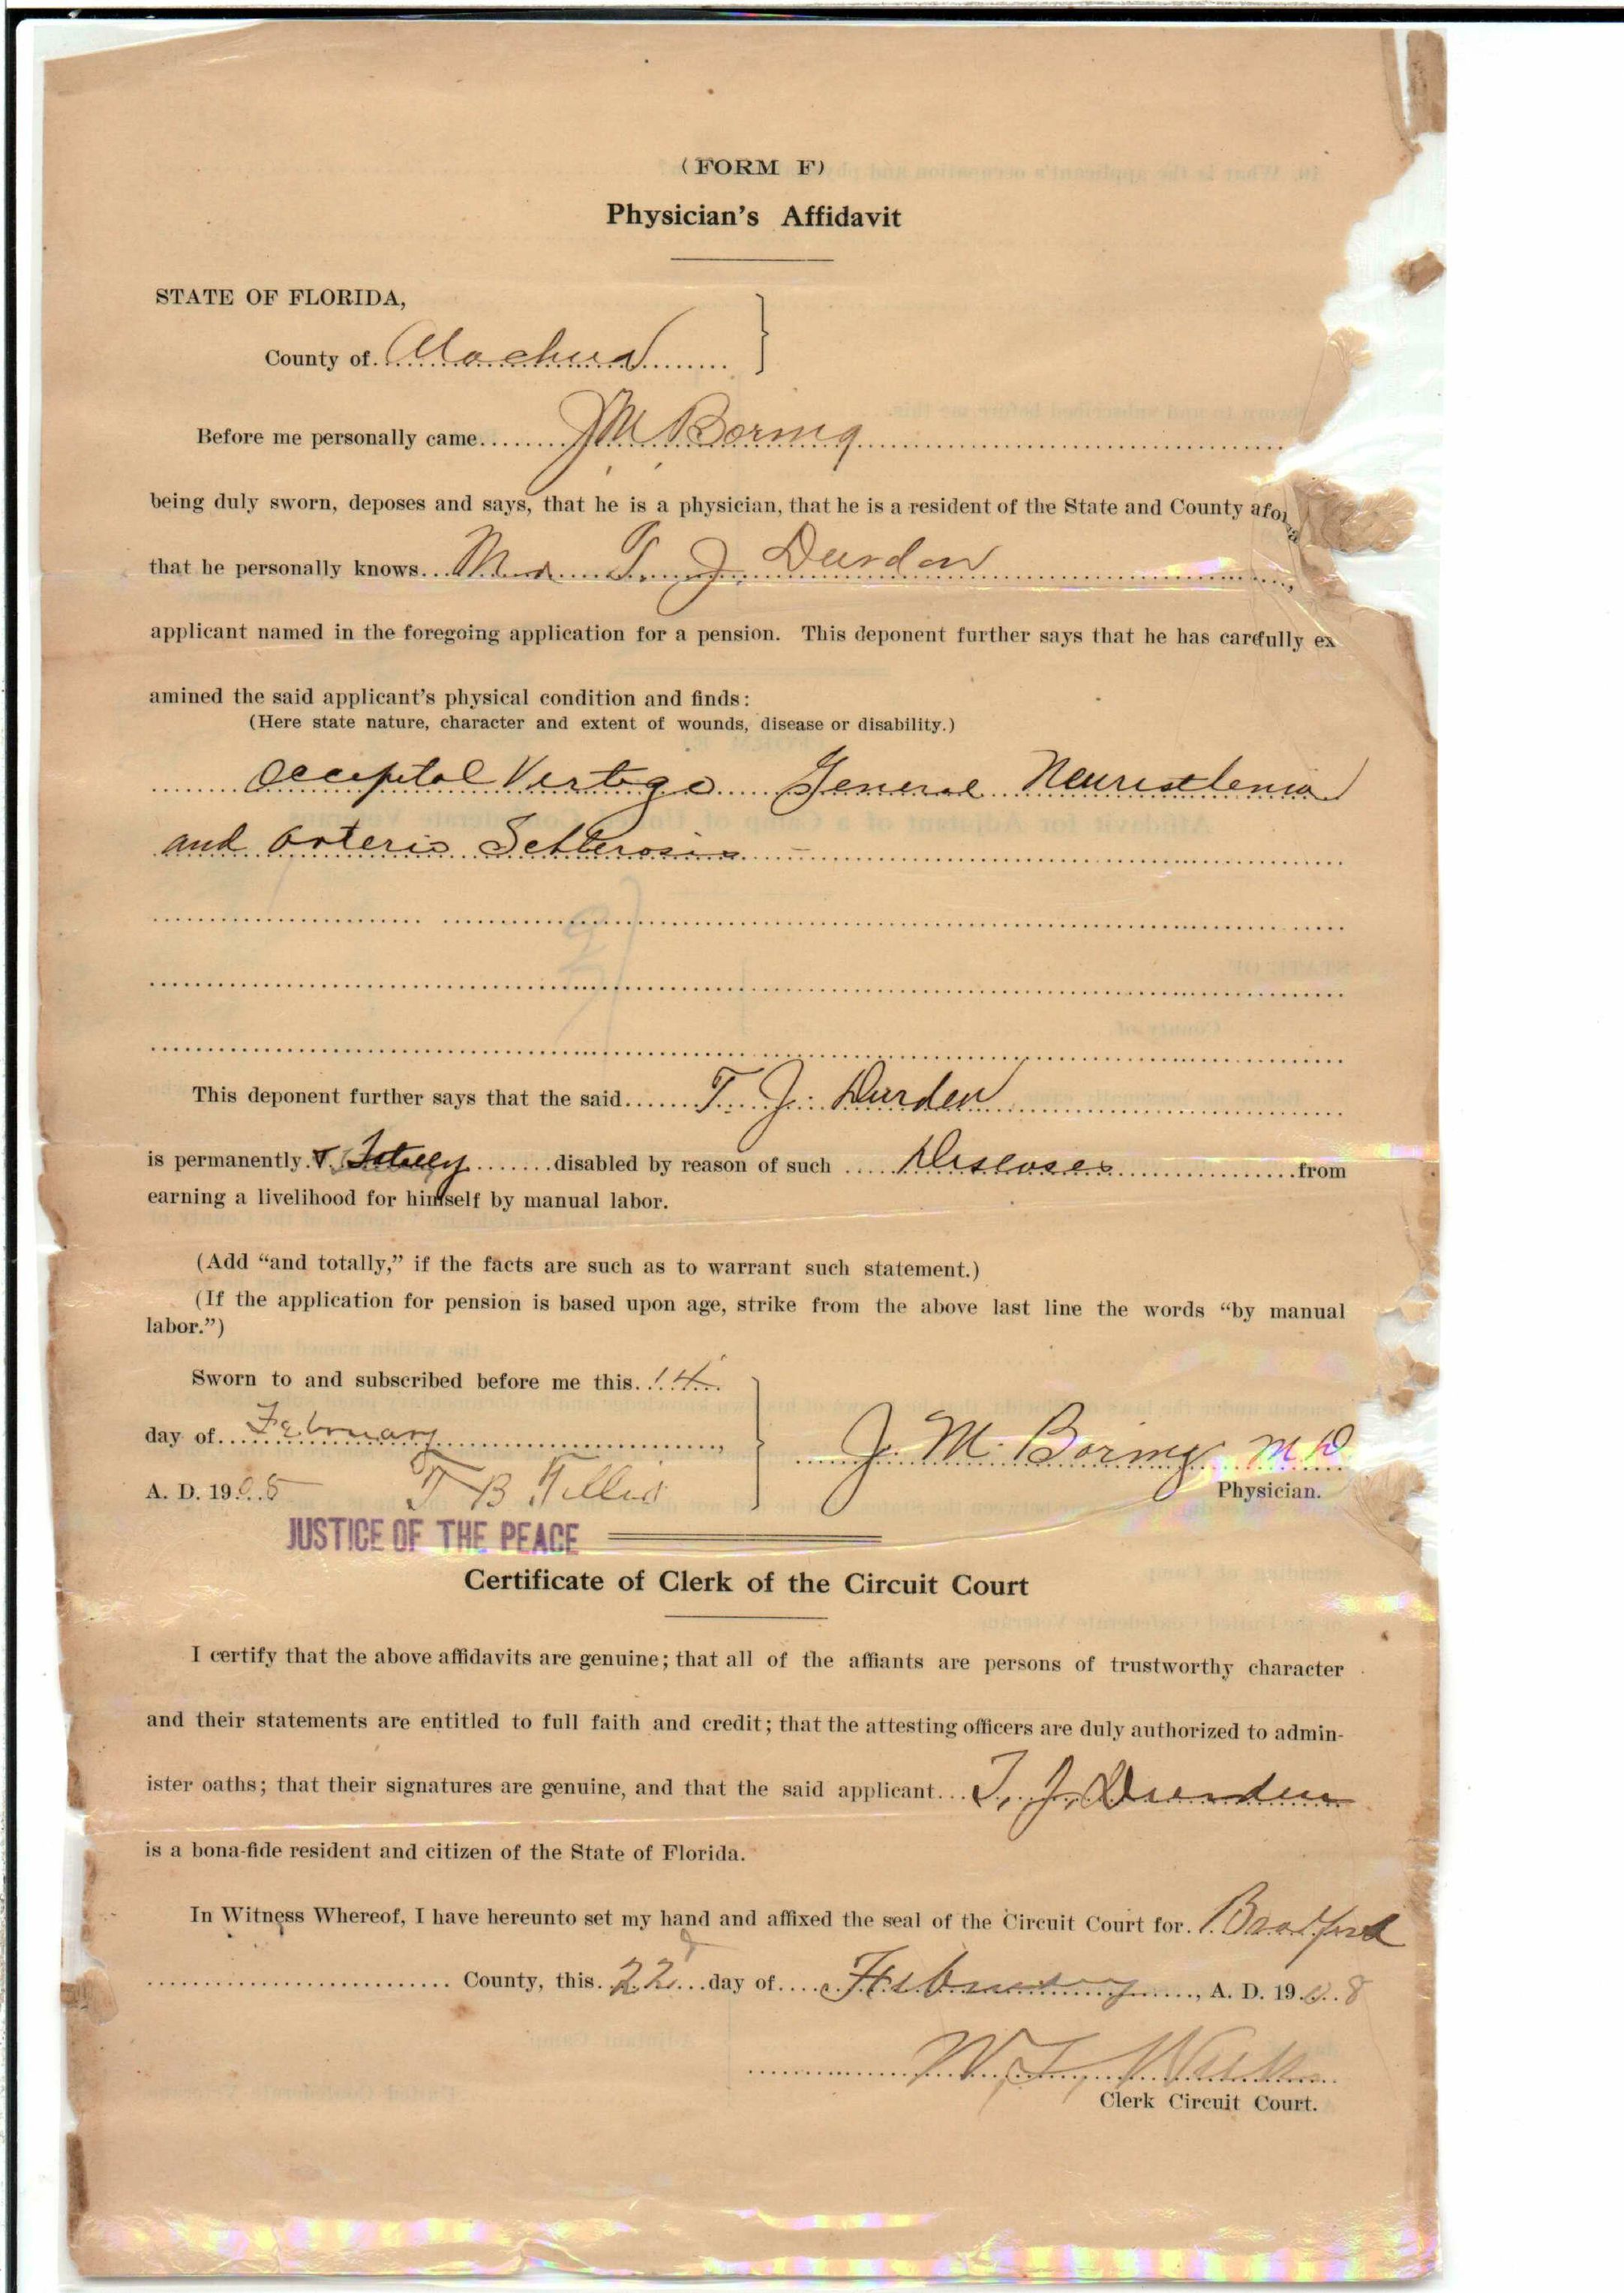 (FORM F)
Physician's Affidavit
STATE OF FLORIDA,
County of Alachua
Before me personally came J M Boring
being duly sworn, deposes and says, that he is a physician, that he is a resident of the State and County afor
that he personally knows Mr T. J. Durden
applicant named in the foregoing application for a pension. This deponent further says that he has carefully ex
amined the said applicant's physical condition and finds:
(Here state nature, character and extent of wounds, disease or disability.)
Occipital Vertigo General Neurasthenia
and Arterio Schlerosis
This deponent further says that the said T. J. Durden
is permanently & Totally disabled by reason of such Diseases from
earning a livelihood for himself by manual labor.
(Add "and totally," if the facts are such as to warrant such statement.)
(If the application for pension is based upon age, strike from the above last line the words "by manual
labor.")
Sworn to and subscribed before me this 14
day of February,
A. D. 1908 T B Tillis
J. M. Boring M D
Physician.
JUSTICE OF THE PEACE
Certificate of Clerk of the Circuit Court
I certify that the above affidavits are genuine; that all of the affiants are persons of trustworthy character
and their statements are entitled to full faith and credit; that the attesting officers are duly authorized to admin-
ister oaths; that their signatures are genuine, and that the said applicant T. J. Durden
is a bona-fide resident and citizen of the State of Florida.
In Witness Whereof, I have hereunto set my hand and affixed the seal of the Circuit Court for Bradford
County, this 22 day of February, A. D. 1908
W. T.
Clerk Circuit Court.